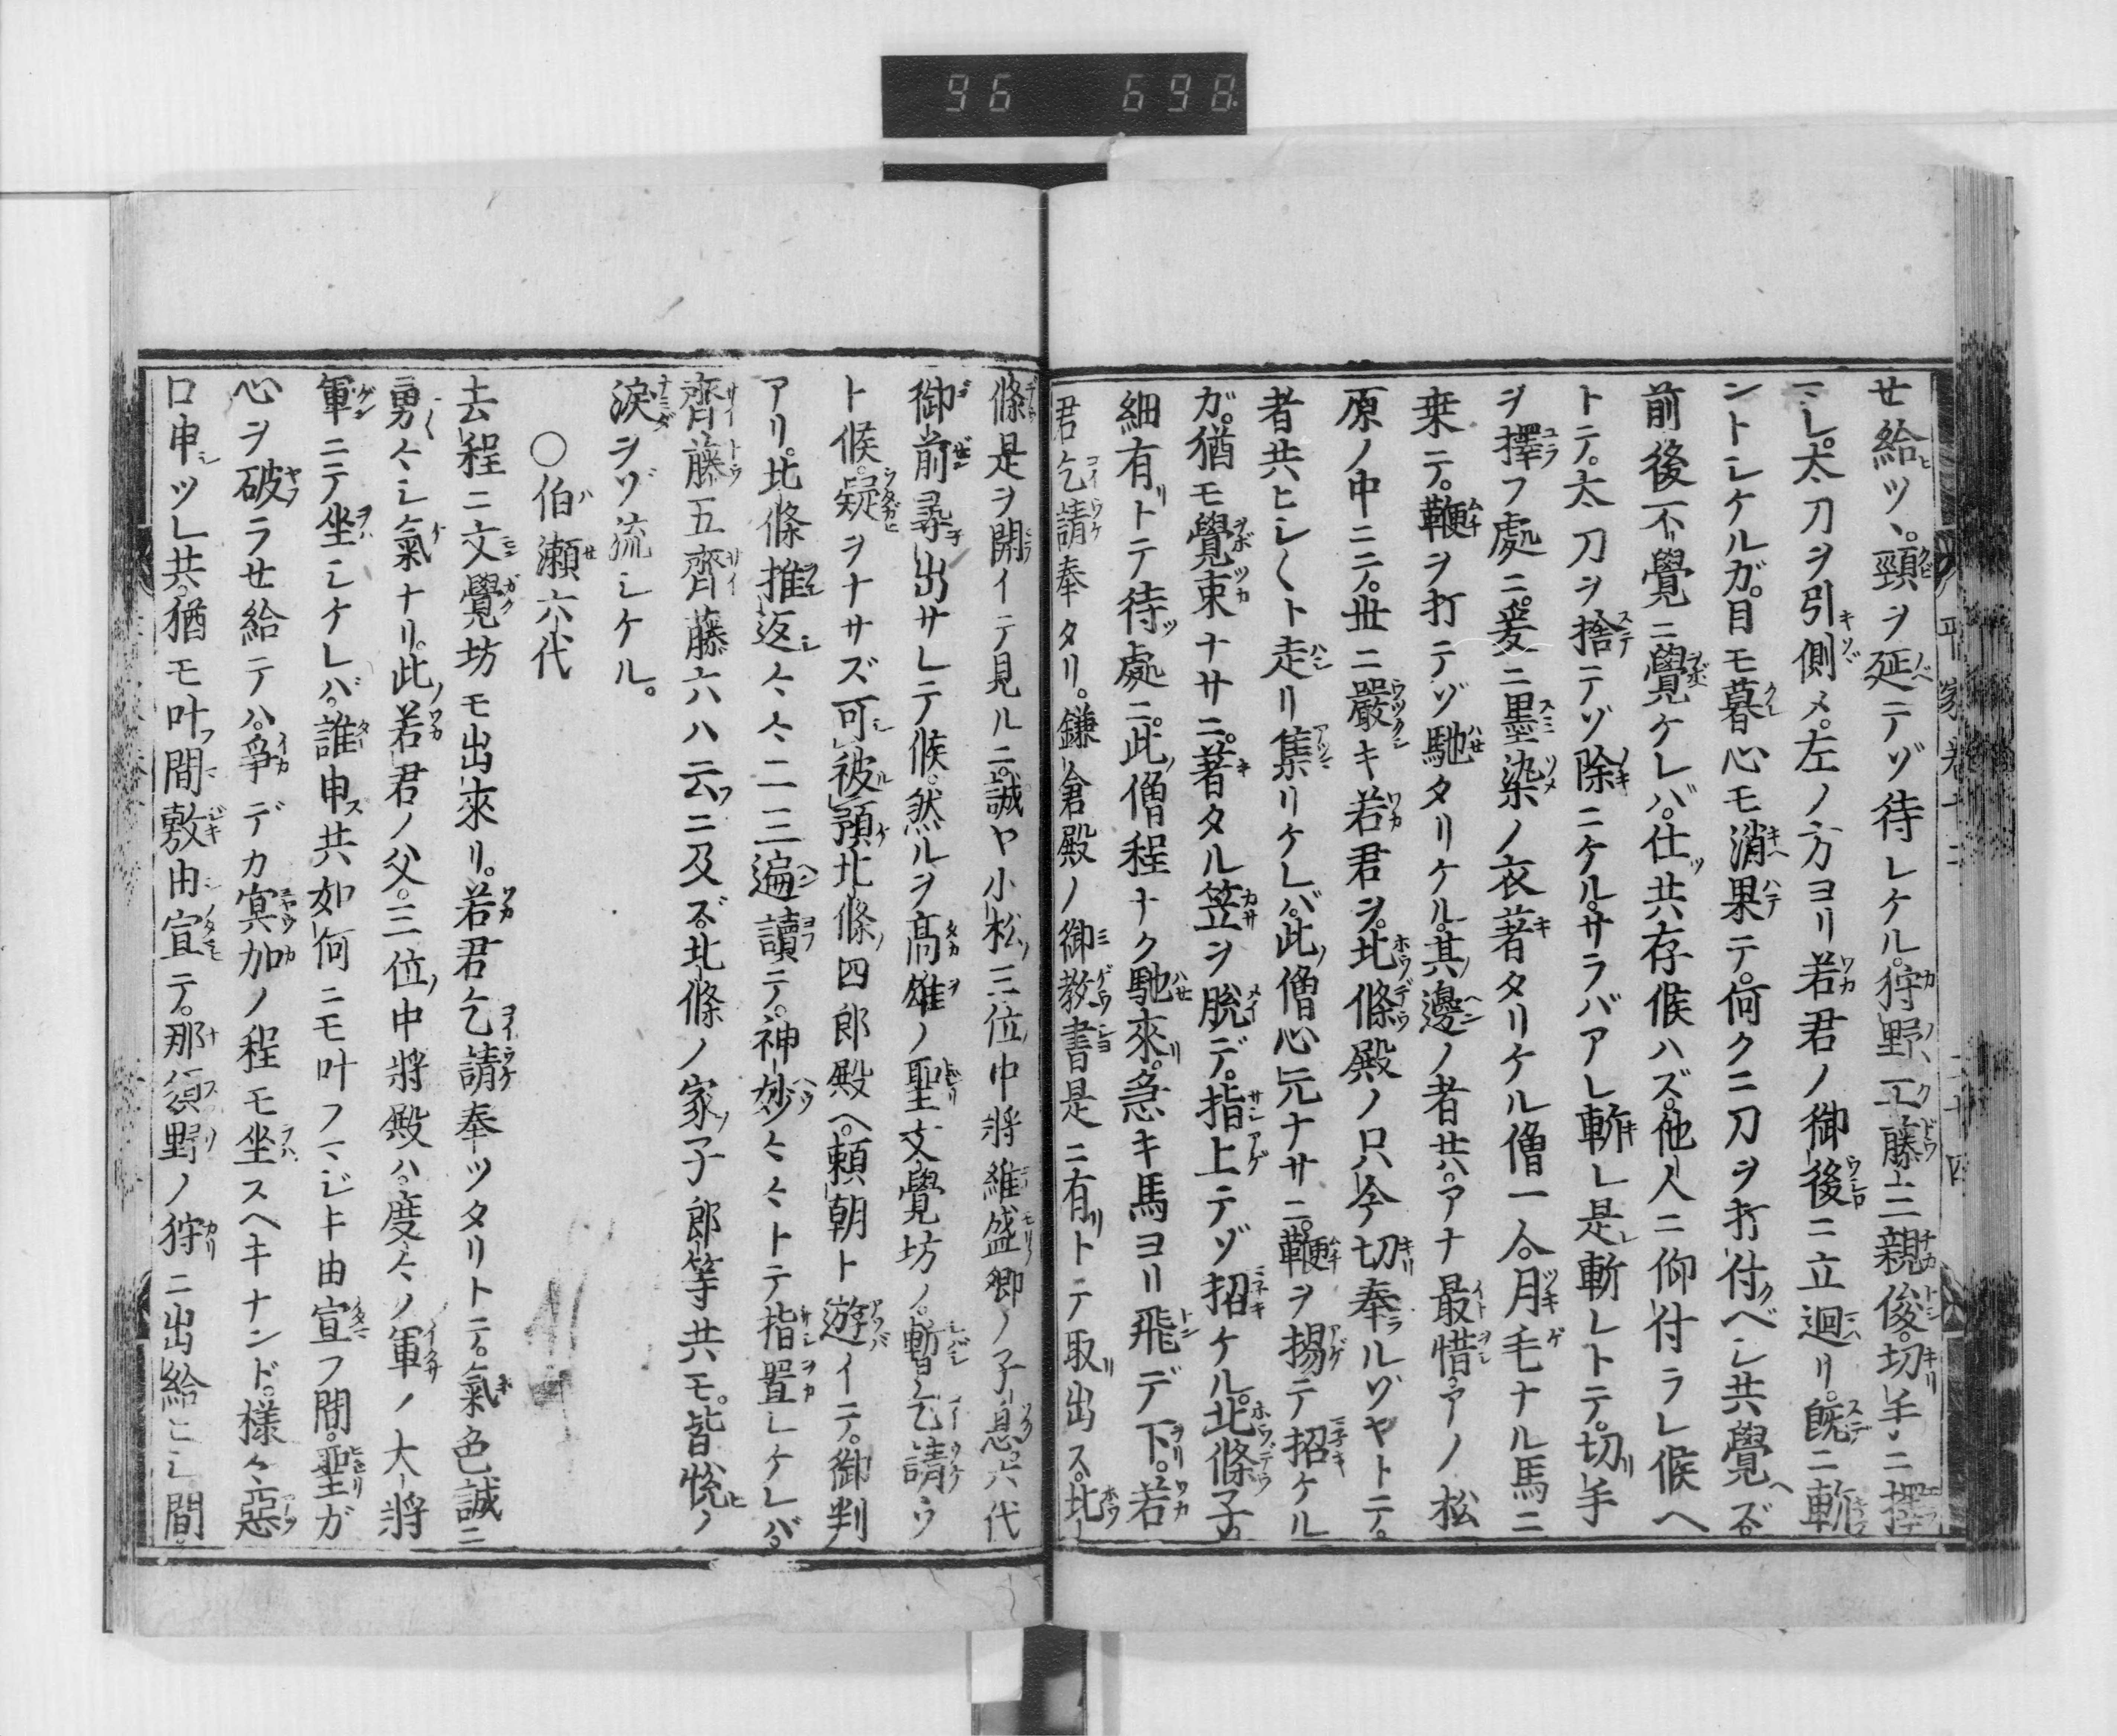 96 698
平家巻十二 二十四
せ給ヒツヽ。頸ヲ延ニテゾ待レケル。狩野ノ工藤三親俊。切手ニ擇
ニレ。太刀ヲ引側メ。左ノ方ヨリ若君ノ御後ニ立迴リ。既ニ斬
ントシケルガ。目モ暮心モ消果テ。何クニ刀ヲ打付ベシ共覺ヘズ。
前後不覺ニ覺ケレバ。仕ツ共存候ハズ。他人ニ仰付ラレ候ヘ
トテ。太刀ヲ捨テゾ除ニケル。サラバアレ斬レ是斬レトテ。切手
ヲ擇フ處ニ。爰ニ墨染ノ衣著タリケル僧一人。月毛ナル馬ニ
乗テ。鞭ヲ打テゾ馳タリケル。其邊ノ者共ハ。アナ最惜。アノ松
原ノ中ニテ。世ニ嚴キ若君ヲ。北條殿ノ只今切奉ルゾヤトテ。
者共ヒシ〱ト走リ集リケレバ。此僧心元ナサニ。鞭ヲ揚テ招ケル
ガ。猶モ覺束ナサニ。著タル笠ヲ脱デ。指上テゾ招ケル。北條子
細有リトテ待ツ處ニ。此僧程ナク馳來リ。急キ馬ヨリ飛デ下。若
君乞請奉タリ。鎌倉殿ノ御教書是ニ有リトテ取リ出ス。北
條是ヲ開イテ見ルニ。誠ヤ小松三位中將維盛卿ノ子息六代
御前尋出サレテ候。然ルヲ高雄ノ聖文覺坊ノ。暫乞請ウ
ト候。疑ヲナサズ可被預北條四郎殿ヘ。頼朝ト遊イテ。御判
アリ。北條推返々々二三遍讀テ。神妙々々トテ指置レケレバ。
齊藤五齊藤六ハ云フニ及ズ。北條ノ家子郎等共モ。皆悦ノ
淚ヲゾ流シケル。
〇伯瀬六代
去程ニ文覺坊モ出來リ。若君乞請奉ツタリトテ。氣色誠ニ
勇々シ氣ナリ。此若君ノ父。三位中將殿ハ。度々ノ軍ノ大將
軍ニテ坐シケレバ。誰申ス共如何ニモ叶フマジキ由宣フ間。聖ガ
心ヲ破ラせ給テハ。爭デカ冥加ノ程モ坐スヘキナンド。樣々惡
口申シツレ共。猶モ叶フ間敷由宣テ。那須野ノ狩ニ出給ヒシ間。